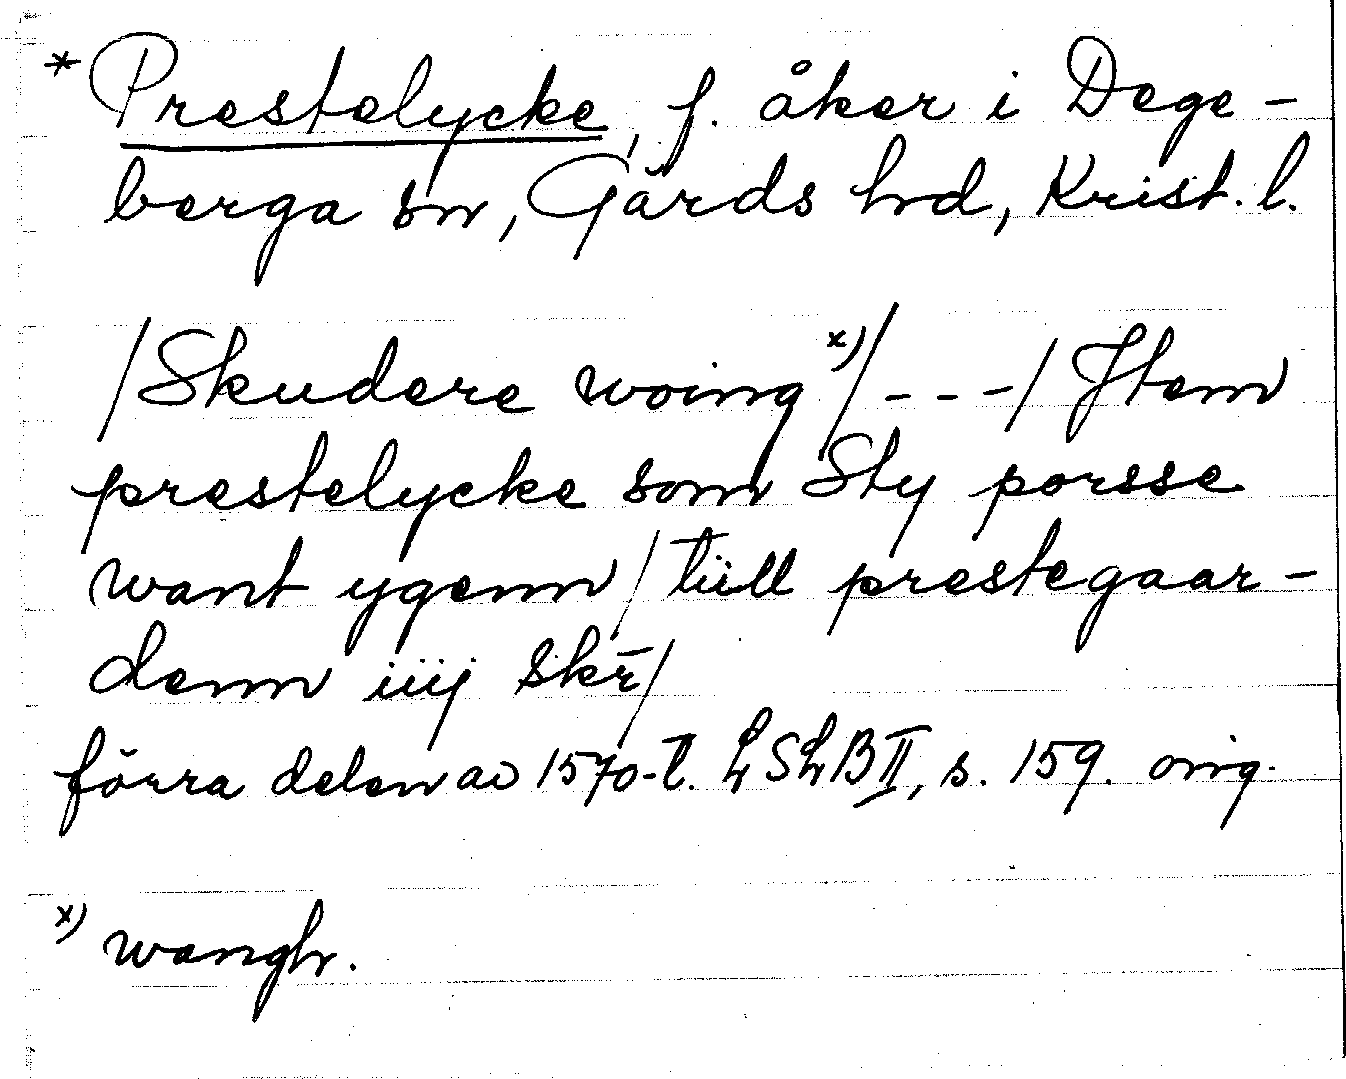 * Prestelycke, f. åker i Dege-
berga sn, Gärds hrd, Krist. l.
/Skudere woing x)/---/ Jtem
prestelycke som Sty porsse
want ygenn/ tüll prestegaar-
denn iiij skr̄/
förra delen av 1570-t. LSLB II, s. 159. orig.
x) wangh.